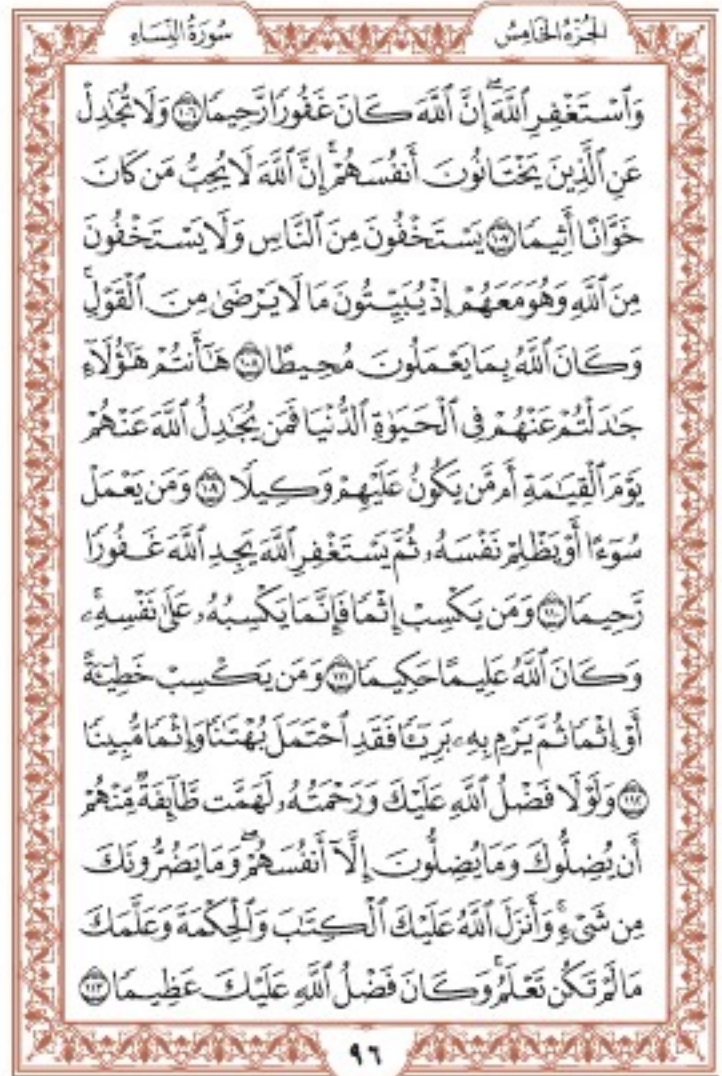 سُورَةُ النِّسَاءِ
الجُزْءُ الخَامِسُ
وَٱسْتَغْفِرِ ٱللَّهَۖ إِنَّ ٱللَّهَ كَانَ غَفُورًا رَّحِيمًا ١٠٦ وَلَا تُجَٰدِلْ
عَنِ ٱلَّذِينَ يَخْتَانُونَ أَنفُسَهُمْۚ إِنَّ ٱللَّهَ لَا يُحِبُّ مَن كَانَ
خَوَّانًا أَثِيمًا ١٠٧ يَسْتَخْفُونَ مِنَ ٱلنَّاسِ وَلَا يَسْتَخْفُونَ
مِنَ ٱللَّهِ وَهُوَ مَعَهُمْ إِذْ يُبَيِّتُونَ مَا لَا يَرْضَىٰ مِنَ ٱلْقَوْلِۚ
وَكَانَ ٱللَّهُ بِمَا يَعْمَلُونَ مُحِيطًا ١٠٨ هَٰٓأَنتُمْ هَٰٓؤُلَآءِ
جَٰدَلْتُمْ عَنْهُمْ فِى ٱلْحَيَوٰةِ ٱلدُّنْيَا فَمَن يُجَٰدِلُ ٱللَّهَ عَنْهُمْ
يَوْمَ ٱلْقِيَٰمَةِ أَم مَّن يَكُونُ عَلَيْهِمْ وَكِيلًا ١٠٩ وَمَن يَعْمَلْ
سُوٓءًا أَوْ يَظْلِمْ نَفْسَهُۥ ثُمَّ يَسْتَغْفِرِ ٱللَّهَ يَجِدِ ٱللَّهَ غَفُورًا
رَّحِيمًا ١١٠ وَمَن يَكْسِبْ إِثْمًا فَإِنَّمَا يَكْسِبُهُۥ عَلَىٰ نَفْسِهِۦۚ
وَكَانَ ٱللَّهُ عَلِيمًا حَكِيمًا ١١١ وَمَن يَكْسِبْ خَطِيٓـَٔةً
أَوْ إِثْمًا ثُمَّ يَرْمِ بِهِۦ بَرِيٓـًٔا فَقَدِ ٱحْتَمَلَ بُهْتَٰنًا وَإِثْمًا مُّبِينًا
١١٢ وَلَوْلَا فَضْلُ ٱللَّهِ عَلَيْكَ وَرَحْمَتُهُۥ لَهَمَّت طَّآئِفَةٌ مِّنْهُمْ
أَن يُضِلُّوكَ وَمَا يُضِلُّونَ إِلَّآ أَنفُسَهُمْۖ وَمَا يَضُرُّونَكَ
مِن شَىْءٍۚ وَأَنزَلَ ٱللَّهُ عَلَيْكَ ٱلْكِتَٰبَ وَٱلْحِكْمَةَ وَعَلَّمَكَ
مَا لَمْ تَكُن تَعْلَمُۚ وَكَانَ فَضْلُ ٱللَّهِ عَلَيْكَ عَظِيمًا ١١٣
٩٦